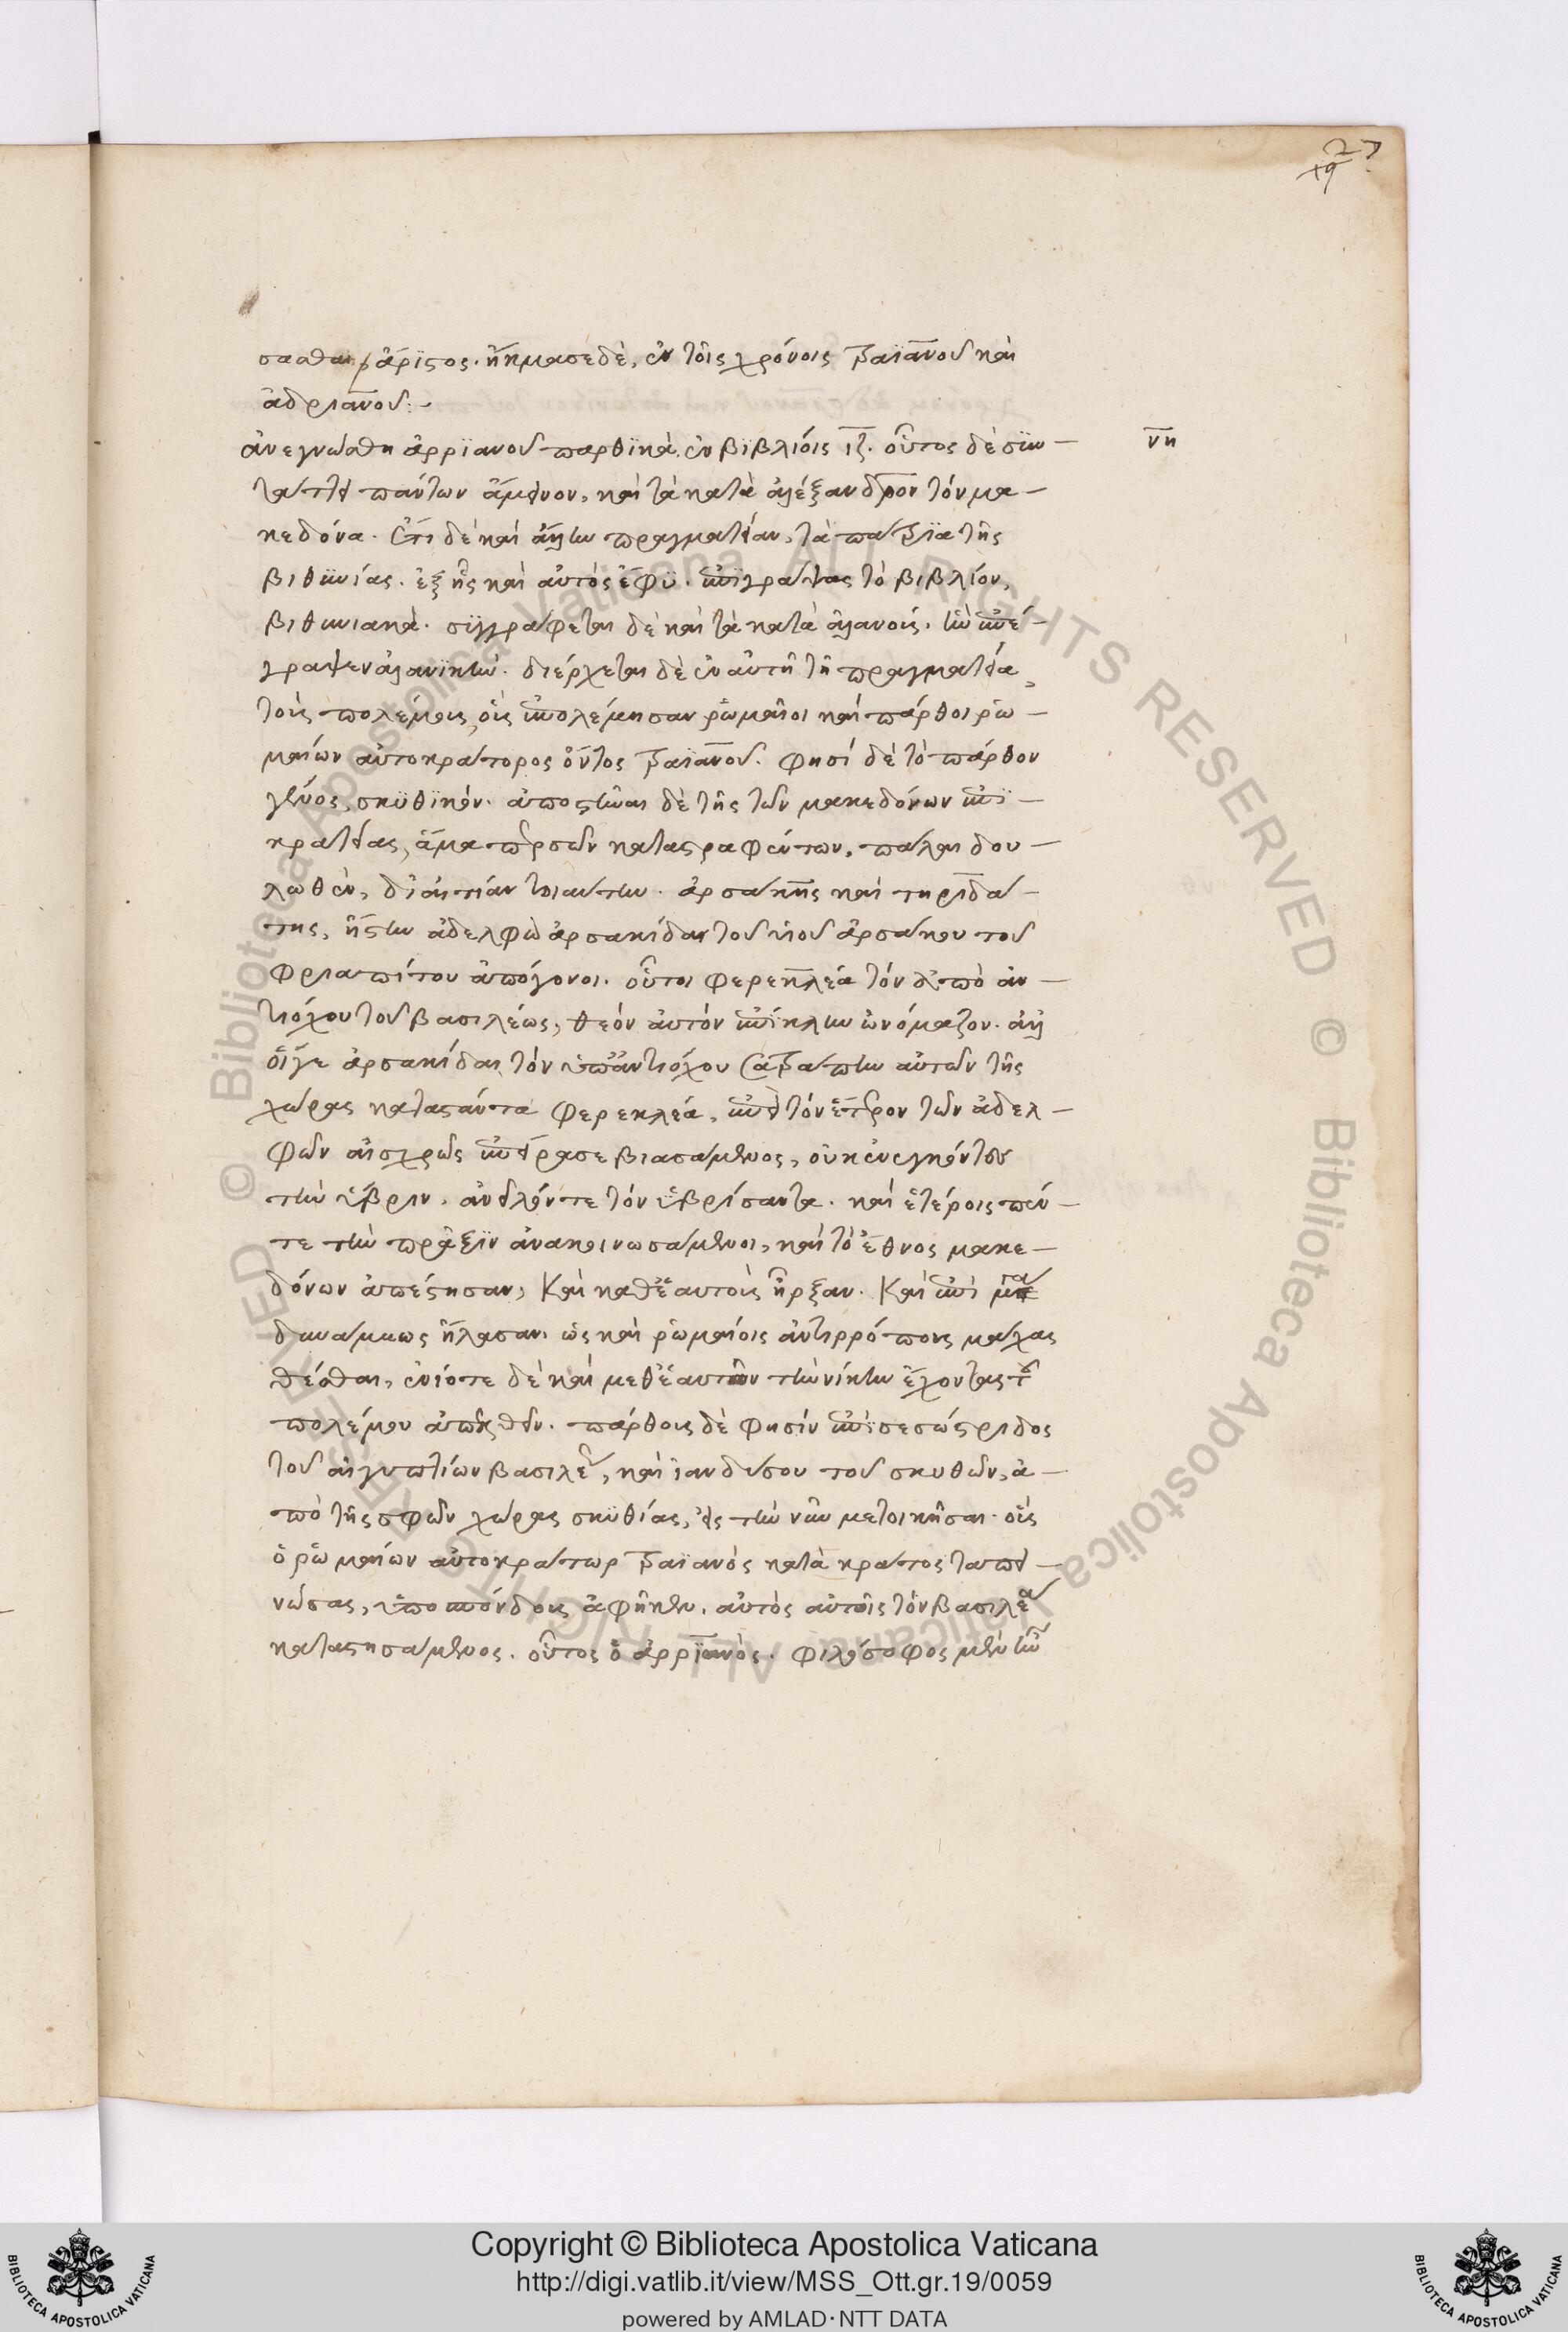 27
19
σασθαι ἄριστος. ἤκμασε δὲ, ἐν τοῖς χρόνοις τραϊανοῦ καὶ
ἀδριανοῦ:-
ἀνεγνώσθη ἀρριανοῦ παρθικὰ ἐν βιβλίοις ιζ. οὗτος δὲ συν-
νη
τάττει πάντων ἄμεινον, καὶ τὰ κατὰ ἀλέξανδρον τὸν μα-
κεδόνα. ἔτι δὲ καὶ ἄλλην πραγματείαν, τὰ πάτρια τῆς
βιθυνίας. ἐξ ἧς καὶ αὐτὸς ἔφυ. ἐπιγράψας τὸ βιβλίον,
βιθυνιακά. συγγράφεται δὲ καὶ τὰ κατὰ ἀλανούς. ἣν ἐπέ-
γραψεν ἀλανικήν. διέρχεται δὲ ἐν αὐτῇ τῇ πραγματείᾳ
τοὺς πολέμους, οὓς ἐπολέμησαν ῥωμαῖοι καὶ πάρθοι ῥω-
μαίων αὐτοκράτορος ὄντος τραϊανοῦ. φησὶ δὲ τὸ πάρθον
γένος, σκυθικόν. ἀποστῆναι δὲ τῆς τῶν μακεδόνων ἐπι-
κρατείας, ἅμα περσῶν καταστραφέντων, πάλαι δου-
λωθὲν, δι' αἰτίαν τοιαύτην. ἀρσάκης καὶ τηριδά-
της, ἤστην ἀδελφὼ ἀρσακίδαι τοῦ υἱοῦ ἀρσάκου τοῦ
φριαπίτου ἀπόγονοι. οὗτοι φερεκλέα τὸν ἀπὸ ἀν-
τιόχου τοῦ βασιλέως, θεὸν αὐτὸν ἐπίκλην ὠνόμαζον. ἀλλ'
οἵγε ἀρσακίδαι, τὸν ὑπ' ἀντιόχου σατράπην αὐτῶν τῆς
χώρας καταστάντα φερεκλέα, ἐπεὶ τὸν ἕτερον τῶν ἀδελ-
φῶν αἰσχρῶς ἐπείρασε βιασάμενος, οὐκ ἐνεγκόντες
τὴν ὕβριν. ἀνεῖλόν τε τὸν ὑβρίσαντα. καὶ ἑτέροις πέν-
τε τὴν πρᾶξιν ἀνακοινωσάμενοι, καὶ τὸ ἔθνος μακε-
δόνων ἀπέστησαν, καὶ καθ' ἑαυτοὺς ἦρξαν. καὶ ἐπὶ μέγα
δυνάμεως ἤλασαν. ὡς καὶ ῥωμαίοις ἀντιρρόπους μάχας
θέσθαι, ἐνίοτε δὲ καὶ μεθ' ἑαυτῶν τὴν νίκην ἔχοντας τοῦ
πολέμου ἀπελθεῖν. πάρθους δὲ φησὶν ἐπὶ σεσώστριδος
τοῦ αἰγυπτίων βασιλέως, καὶ ἰανδύσου τοῦ σκυθῶν, ἀ-
πὸ τῆς σφῶν χώρας σκυθίας, εἰς τὴν νῦν μετοικῆσαι. οὓς
ὁ ῥωμαίων αὐτοκράτωρ τραϊανὸς κατὰ κράτος ταπει-
νώσας, ὑποσπόνδους ἀφῆκεν. αὐτὸς αὐτοῖς τὸν βασιλέα
καταστησάμενος. οὗτος ὁ ἀρριανὸς. φιλόσοφος μὲν ἦν
Copyright © Biblioteca Apostolica Vaticana
http://digi.vatlib.it/view/MSS_Ott.gr.19/0059
powered by AMLAD·NTT DATA
© Biblioteca Apostolica Vaticana ALL RIGHTS RESERVED © Biblioteca Apostolica Vaticana ALL RIGHTS RESERVED
BIBLIOTECA APOSTOLICA VATICANA
BIBLIOTECA APOSTOLICA VATICANA